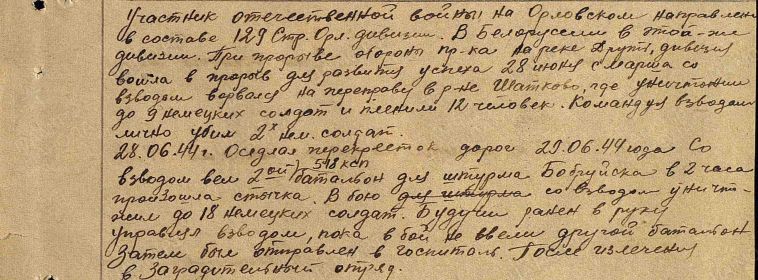 Участник отечественной войны на Орловском направлени
в составе 129 Стр. Орл. дивизии. В Белоруссии в этой-же
дивизии. При прорыве обороны пр-ка на реке Друть, дивизия
вошла в прорыв для развития успеха 28 июня с марша со
взводом ворвался на переправу в р-не Шатково, где уничтожил
до 9 немецких солдат и пленили 12 человек. Командуя взводом
лично убил 2х нем. солдат.
28.06.44г. Оседлал перекресток дорог 29.06.44 года Со
взводом вел 2ой батальон 518 ксп для штурма Бобруйска в 2 часа
произошла стычка. В бою для штурма со взводом уничто-
жил до 18 немецких солдат. Будучи ранен в руку
управлял взводом, пока в бой не ввели другой батальон
Затем был отправлен в госпиталь. После излечения
в Заградительный отряд.